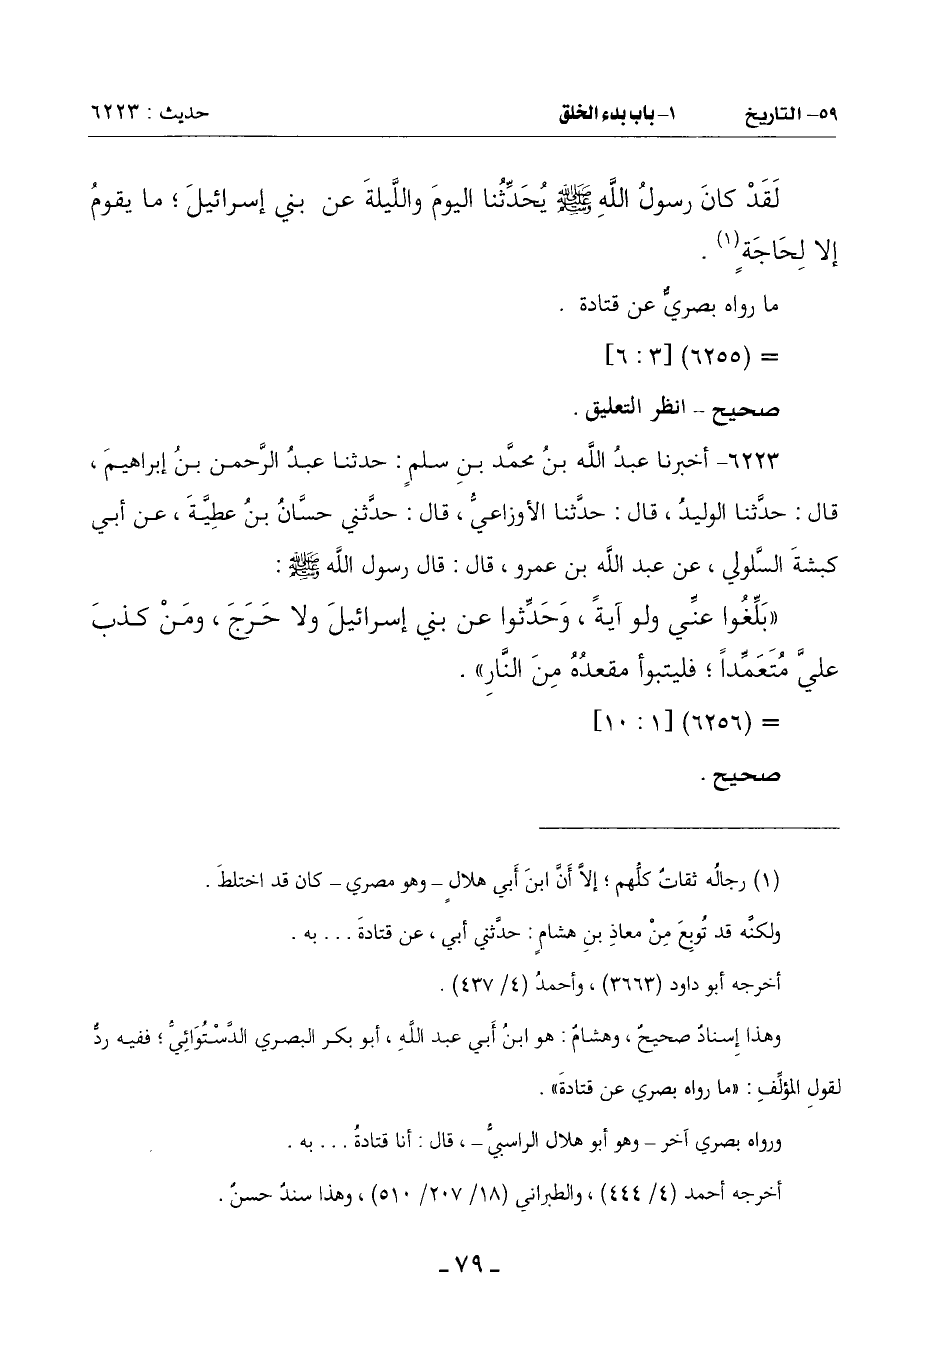 ٥٩- التاريخ ١- باب بدء الخلق حديث : ٦٢٢٣
لَقَدْ كانَ رسولُ اللَّهِ ﷺ يُحَدِّثُنا اليومَ واللَّيلةَ عن بني إسرائيلَ ؛ ما يقومُ
إلا لِحَاجَةٍ(١) .
ما رواه بصريٌّ عن قتادة .
= (٦٢٥٥) [٣ : ٦]
صحيح – انظر التعليق .
٦٢٢٣- أخبرنا عبدُ اللَّه بنُ محمَّد بنِ سلمٍ : حدثنا عبدُ الرَّحمن بنُ إبراهيمَ ،
قال : حدَّثنا الوليدُ ، قال : حدَّثنا الأوزاعيُّ ، قال : حدَّثني حسَّانُ بنُ عطيَّةَ ، عن أبي
كبشةَ السَّلولي ، عن عبد اللَّه بن عمرو ، قال : قال رسول اللَّه ﷺ :
«بَلِّغُوا عنِّي ولو آيةً ، وَحَدِّثوا عن بني إسرائيلَ ولا حَرَجَ ، ومَنْ كذبَ
عليَّ مُتَعَمِّداً ؛ فليتبوأ مقعدُهُ مِنَ النَّارِ» .
= (٦٢٥٦) [١ : ١٠]
صحيح .
(١) رجالُه ثقاتٌ كلُّهم ؛ إلاَّ أَنَّ ابنَ أبي هلالٍ – وهو مصري – كان قد اختلطَ .
ولكنَّه قد تُوبِعَ مِنْ معاذِ بنِ هشامٍ : حدَّثني أبي ، عن قتادةَ . . . به .
أخرجه أبو داود (٣٦٦٣) ، وأحمدُ (٤/ ٤٣٧) .
وهذا إسنادٌ صحيحٌ ، وهشامٌ : هو ابنُ أبي عبد اللَّهِ ، أبو بكر البصري الدَّسْتُوَائِيُّ ؛ ففيه ردٌّ
لقولِ المؤلِّفِ : «ما رواه بصري عن قتادةَ» .
ورواه بصري آخر – وهو أبو هلال الراسبيُّ – ، قال : أنا قتادةُ . . . به .
أخرجه أحمد (٤/ ٤٤٤) ، والطبراني (١٨/ ٢٠٧/ ٥١٠) ، وهذا سندٌ حسنٌ .
– ٧٩ –